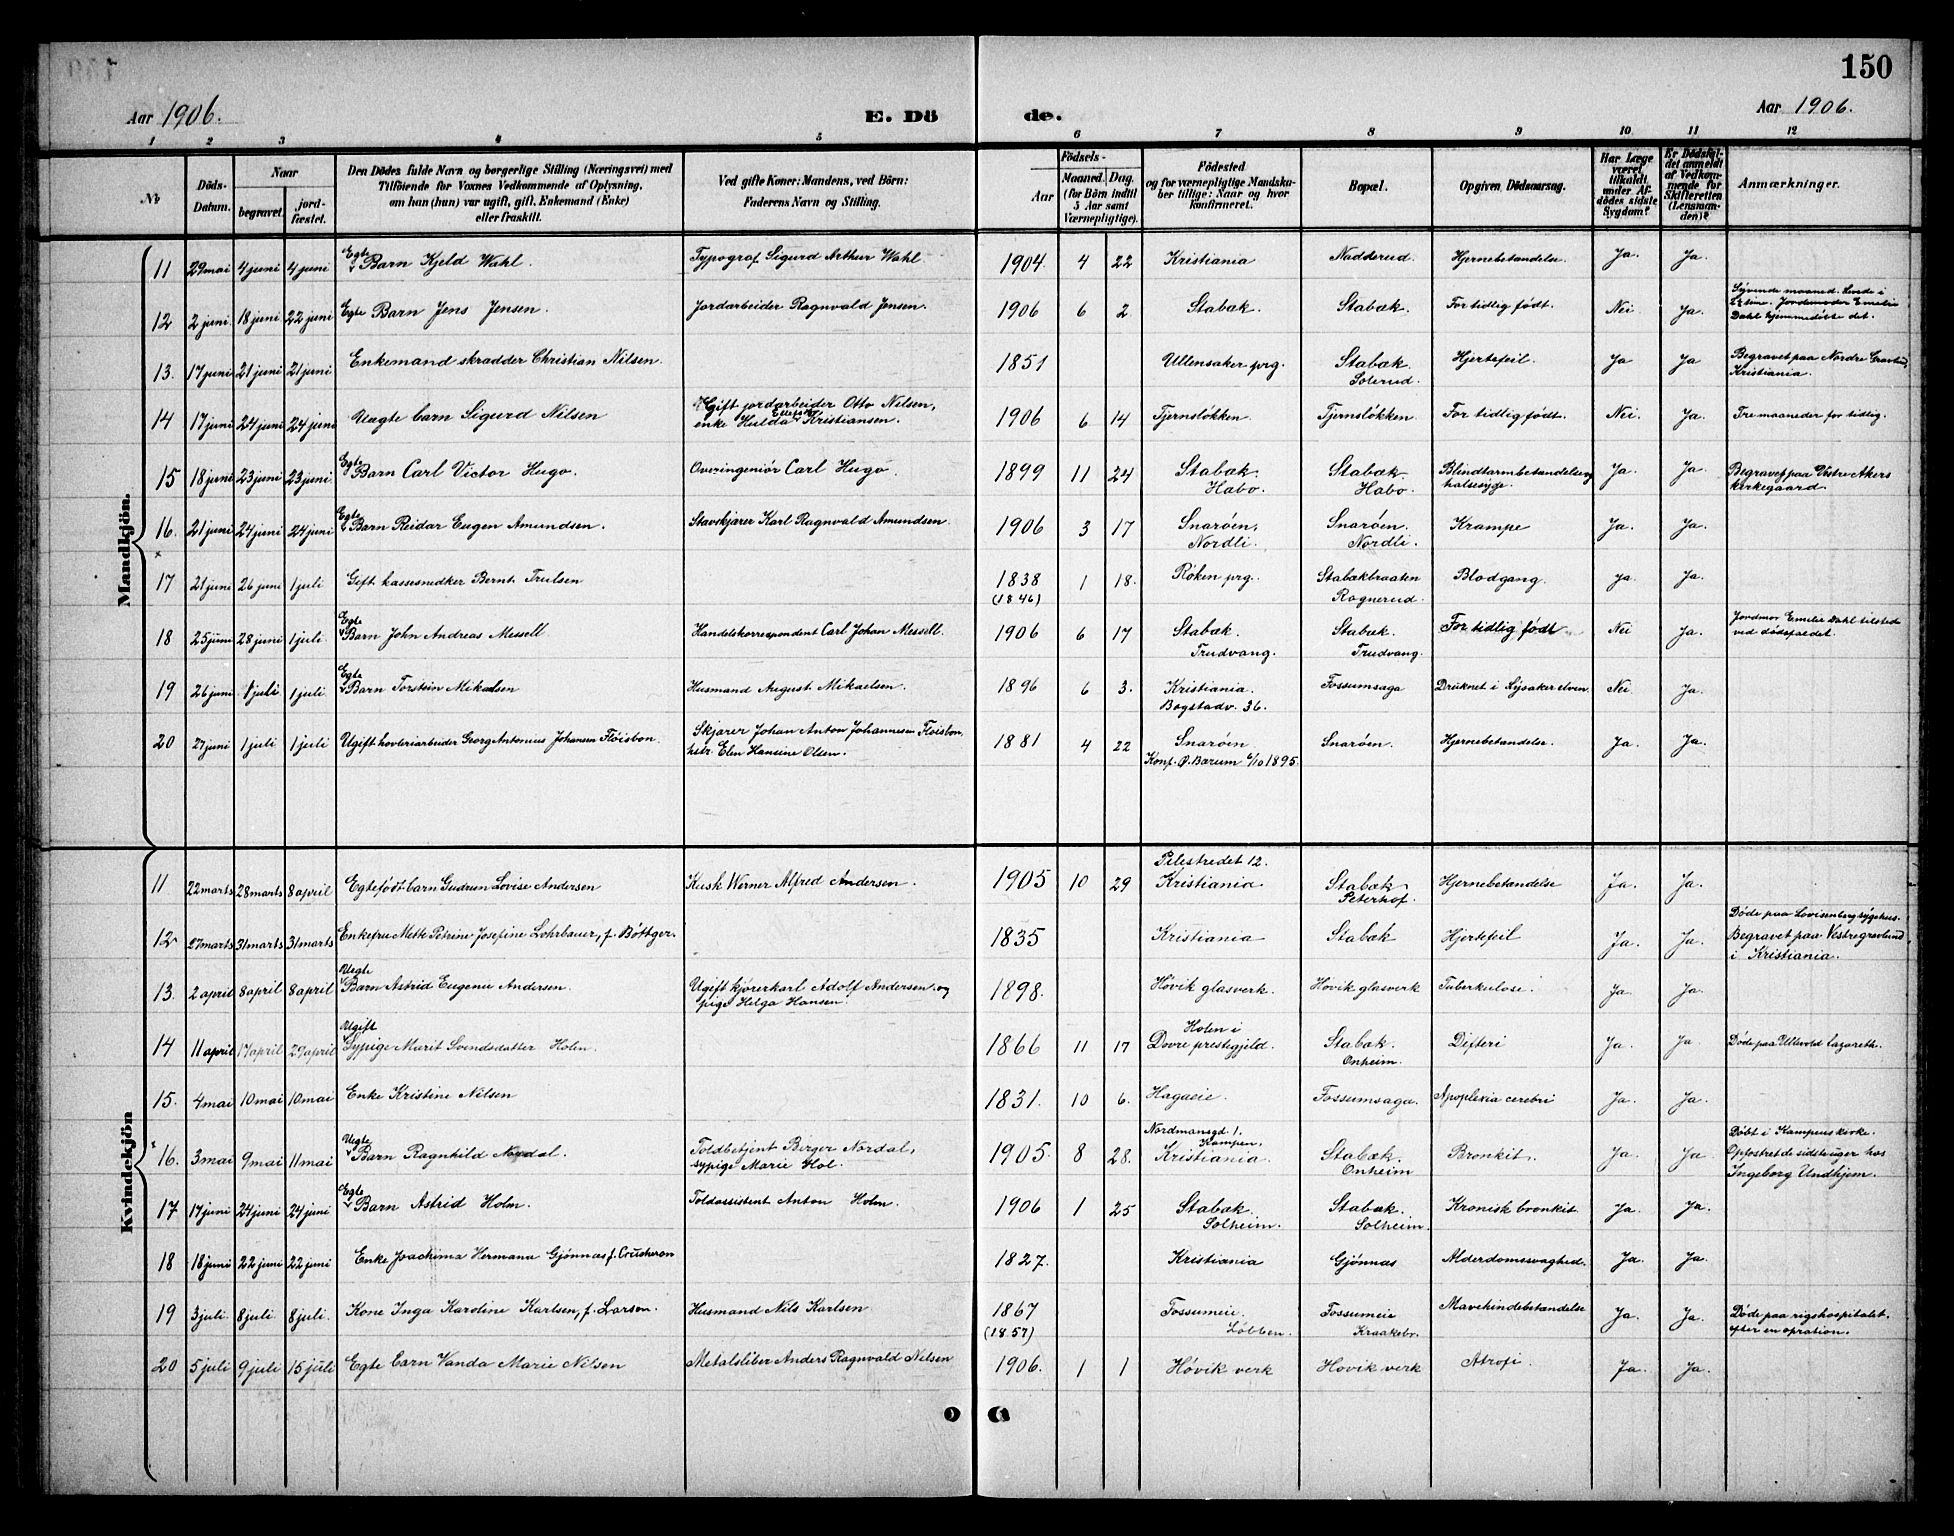 150
Aar 1906.
E. Dö de.
Aar 1906.
1 2 3 4 5 6 7 8 9 10 11 12
No
Döds-Datum.
Naar
begravet.
jord-fæstet.
Den Dödes fulde Navn og borgerlige Stilling (Næringsvei) med
Tilföiende for Voxnes Vedkommende af Oplysning,
om han (hun) var ugift, gift, Enkemand (Enke)
eller fraskilt.
Ved gifte Koner: Mandens, ved Börn:
Faderens Navn og Stilling.
Födsels-
Aar
Maaned. Dag.
(for Börn indtil
5 Aar samt
Værnepligtige).
Födested
og for værnepligtige Mandska-
ber tillige: Naar og hvor
konfirmeret.
Bopæl.
Opgiven Dödsaarsag.
Har Læge
været
tilkaldt
under Af-
dödes sidste
Sygdom?
Er Dödsfal-
det anmeldt
af Vedkom-
mende for
Skifteretten
(Lensman-
den)?
Anmærkninger.
Mandkjön.
11 29 mai 4 juni 4 juni Egte Barn Kjeld Wahl. Typograf Sigurd Arthur Wahl 1904 4 22 Kristiania Nadderud. Hjernebetandelse Ja. Ja.
12 2 juni 18 juni 22 juni Egte Barn Jens Jensen. Jordarbeider Ragnvald Jensen. 1906 6 2 Stabæk. Stabæk. For tidlig født. Nei. Ja. Syvende maaned. Levede i
time. Jordemoder Emelie
Dahl hjemmedøbte det.
13. 17 juni 21 juni 21 juni Enkemand skrædder Christian Nilsen. 1851 Ullensaker prg. Stabæk. Hjertefeil. Ja Ja Begravet paa Nordre Gravlund,
Soterud. Kristiania.
14 17 juni 24 juni 24 juni Uægte barn Sigurd Nilsen Gift jordarbeider Otto Nilsen, 1906 6 14 Tjernsløkken Tjernsløkken. For tidlig født. Nei. Ja. Tre maaneder for tidlig.
enke Hulda Kristiansen.
15 18 juni 23 juni 23 juni. Egte Barn Carl Victor Hugo. Overingeniør Carl Hugo. 1899 11 24 Stabæk. Stabæk. Blindtarmbetandelse og Ja. Ja. Begravet paa Vestre Akers
Habo. Habo. halsesyge. kirkegaard.
16. 21 juni 24 juni 24 juni Egte Barn Reidar Eugen Amundsen. Stavskjærer Karl Ragnvald Amundsen. 1906 3 17 Snarøen, Snarøen. Krampe Ja. Ja.
Nordli. Nordli.
17 21 juni 26 juni 1 juli Gift kassesnedker Bernt Trulsen 1838 1 18. Røken prg. Stabækbraaten Blodgang. Ja. Ja.
(1846) Ragnerud.
18 25 juni 28 juni 1 juli. Egte Barn John Andreas Messell. Handelskorrespondent Carl Johan Messell. 1906 6 17 Stabæk. Stabæk. For tidlig født Nei Ja. Jordmor Emelie Dahl tilstede
Trudvang. Trudvang. ved dødsfaldet.
19 26 juni 1 juli 1 juli Egte Barn Torstein Mikaelsen Husmand August Mikaelsen. 1896 6 3. Kristiania. Fossumsaga Druknet i Lysaker elven. Nei Ja.
Bogstadv. 36.
20 27 juni 1 juli 1 juli Ugift høvleriarbeider Georg Antonius Johansen Fløisbon. Skjærer Johan Anton Johannesen Fløisbon, 1881 4 22 Snarøen Snarøen. Hjernebetandelse. Ja. Ja.
hstr. Elen Hansine Olsen. Konf. Ø. Bærum 6/10 1895.
Kvindekjön
11 22 marts 28 marts 8 april Egtefødt barn Gudrun Lovise Andersen Kusk Werner Alfred Andersen. 1905 10 29 Pilestrædet 12. Kristiania Stabæk, Hjernebetandelse Ja. Ja.
Peterhof.
12 27 marts 31 marts 31 marts Enkefru Mette Petrine Josefine Lohrbauer, f. Bøttger. 1835 Kristiania Stabæk Hjertefeil Ja. Ja. Døde paa Lovisenberg sygehus.
Begravet paa Vestre gravlund
i Kristiania.
13. 2 april 8 april 8 april Uegte Barn Astrid Eugenie Andersen. Ugift kjørerkarl Adolf Andersen og 1898. Høvik glasverk. Høvik glasverk Tuberkulose. Ja. Ja.
pige Helga Hansen.
14 11 april 17 april 29 april Ugift Sypige Marit Svendsdatter Holen. 1866 11 17 Holen i Dovre prestegjeld. Stabæk. Difteri Ja. Ja. Døde paa Ullevold Lazareth.
Onheim.
15. 4 mai 10 mai 10 mai Enke Kristine Nilsen 1831. 10 6. Hagaeie. Fossumsaga. Apoplexia cerebri Ja. Ja.
16. 3 mai 9 mai 11 mai Uegte Barn Ragnhild Nordal. Toldbetjent Berger Nordal, 1905. 8 28. Nordmansgd. 1. Kampen, Kristiania. Stabæk. Bronkit. Ja. Ja Døbt i Kampens kirke.
sypige Marie Hol. Onheim Opfostret de sidste uger hos
Ingeborg Undhjem.
17 17 juni 24 juni 24 juni Egte Barn Astrid Holm. Toldassistent Anton Holm. 1906 1 25 Stabæk Stabæk. Kronisk bronkit. Ja. Ja.
Solheim. Solheim.
18 18 juni 22 juni 22 juni Enke Joachima Hermana Gjønnæs f. 1827. Kristiania Gjønnæs Alderdomssvaghed. Ja. Ja.
19 3 juli. 8 juli. 8 juli. Kone Inga Karoline Karlsen, f. Larsen. Husmand Nils Karlsen 1867 Fossumeie. Fossumeie Mavehindebetandelse Ja. Ja. Døde paa rigshospitalet
(1857) Løbben. Kraakebr. efter en opration.
20 5 juli 9 juli 15 juli Egte Barn Vanda Marie Nilsen Metalsliber Anders Ragnvald Nilsen 1906. 1 1 Høvik verk Høvik verk Atrofi. Ja. Ja.